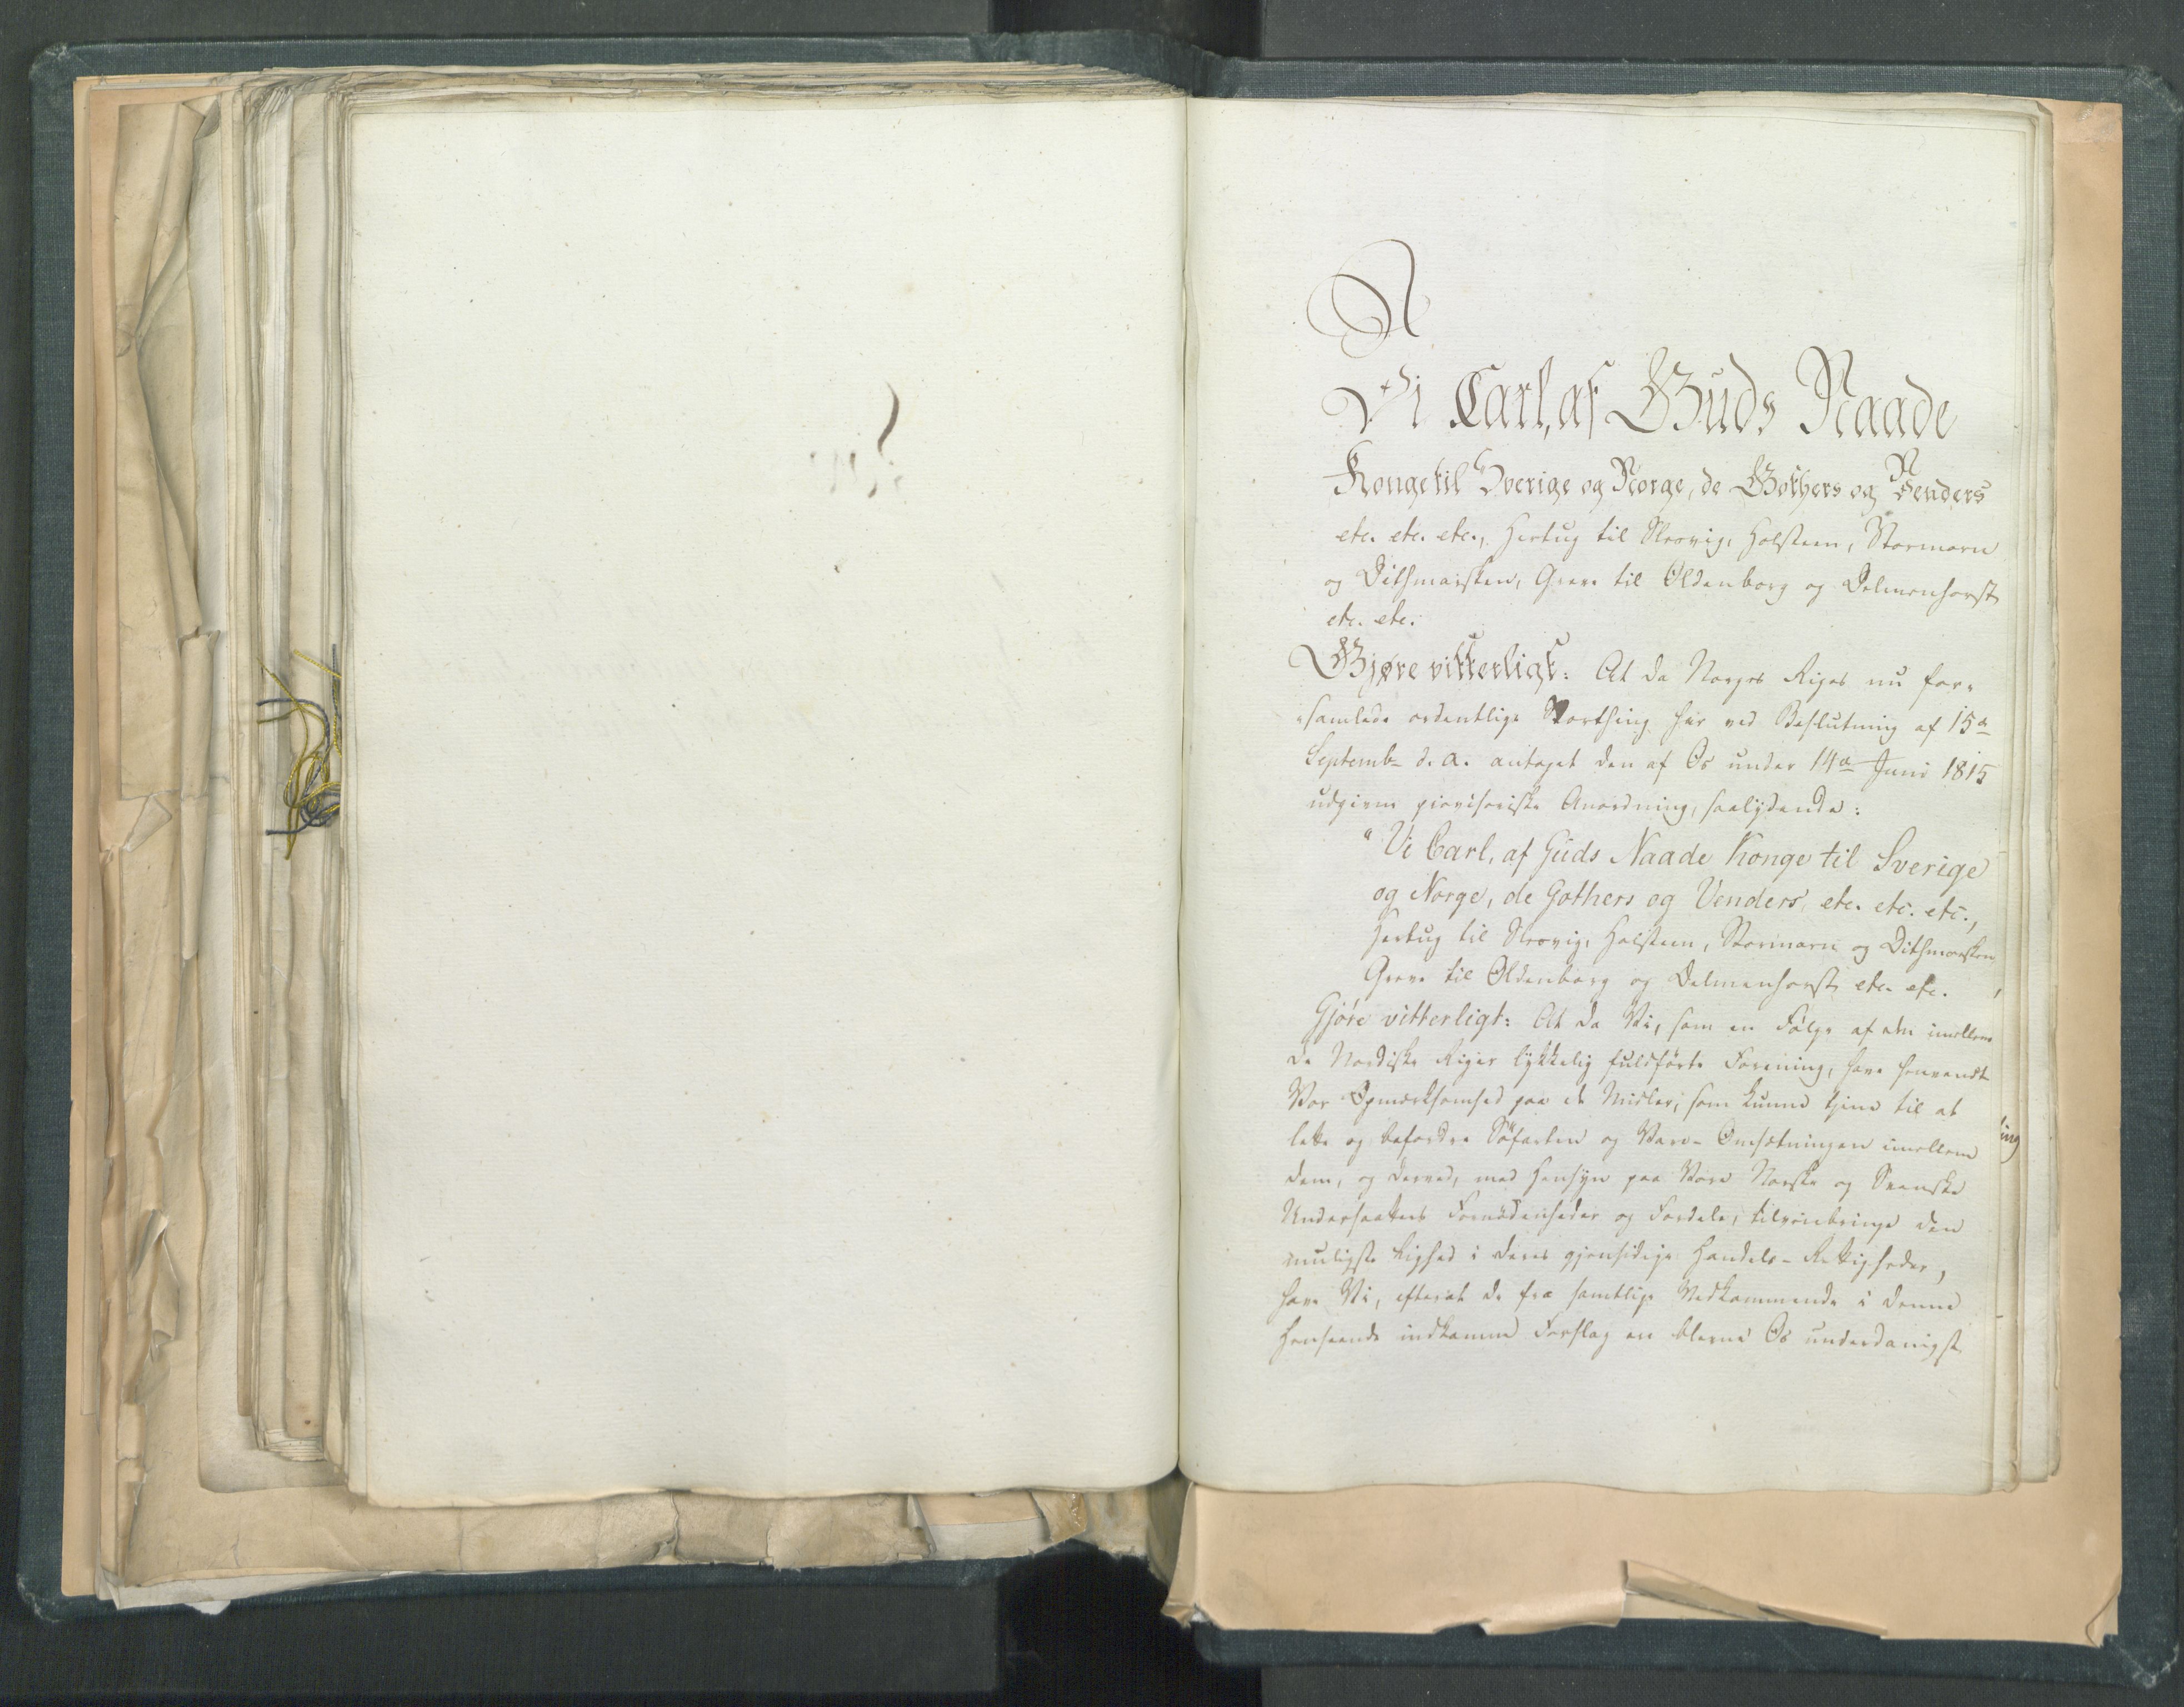 Vi Carl, af Guds Naade
Konge til Sverige og Norge, de Gothers og Venders
etc. etc. etc., Hertug til Slesvig, Holsteen, Stormarn
og Dithmarsken, Greve til Oldenborg og Delmenhorst
etc. etc.
Gjøre vitterligt: At da Norges Riges nu for-
-samlede ordentlige Storthing har ved Beslutning af 15de
Septembr d. A. antaget den af Os under 14de Juni 1815
udgivne provisoriske Anordning, saalydende:
"Vi Carl, af Guds Naade Konge til Sverige
og Norge, de Gothers og Venders, etc. etc. etc.,
Hertug til Slesvig, Holsteen, Stormarn og Dithmarsken,
Greve til Oldenborg og Delmenhorst etc. etc.
Gjöre vitterligt: At da Vi, som en Fölge af den imellem
de Nordiske Riger lykkelig fuldförte Forening, have henvendt
Vor Opmærksomhed paa de Midler, som kunne tjene til at
lette og befordre Söfarten og Vare-Omsætningen imellem
dem, og derved, med Hensyn paa Vore Norske og Svenske
Undersaatters Fornödenheder og Fordele, tilveiebringe den
muligste Lighed i deres gjensidige Handels-Rettigheder,
have Vi, efterat de fra samtlige Vedkommende i denne
Henseende indkomne Forslag ere blevne Os underdanigst
ing